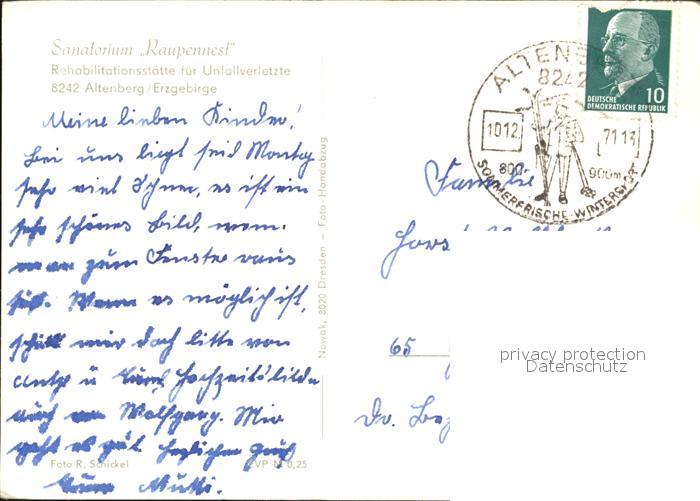 Sanatorium „Raupennest"
Rehabilitationsstätte für Unfallverletzte
8242 Altenberg/Erzgebirge
Meine lieben Kinder!
Bei uns liegt seid Montag
sehr viel Schnee, es ist ein
sehr schönes Bild, wenn
man zum Fenster raus
sieht. Wenn es möglich ist,
schickt mir doch bitte von
Antje u. Hochzeitsbilder
auch von Wolfgang. Mir
geht es gut. Herzlichen Gruß
Eure Mutti.
Foto R. Schickel
EVP M 0,25
Nowak, 8020 Dresden – Foto-Handabzug
ALTENBE
8242
1012
7113
800-
900m
SOMMERFRISCHE-WINTERSPORT
DEUTSCHE
DEMOKRATISCHE REPUBLIK
10
Familie
Horst
65
privacy protection
Datenschutz